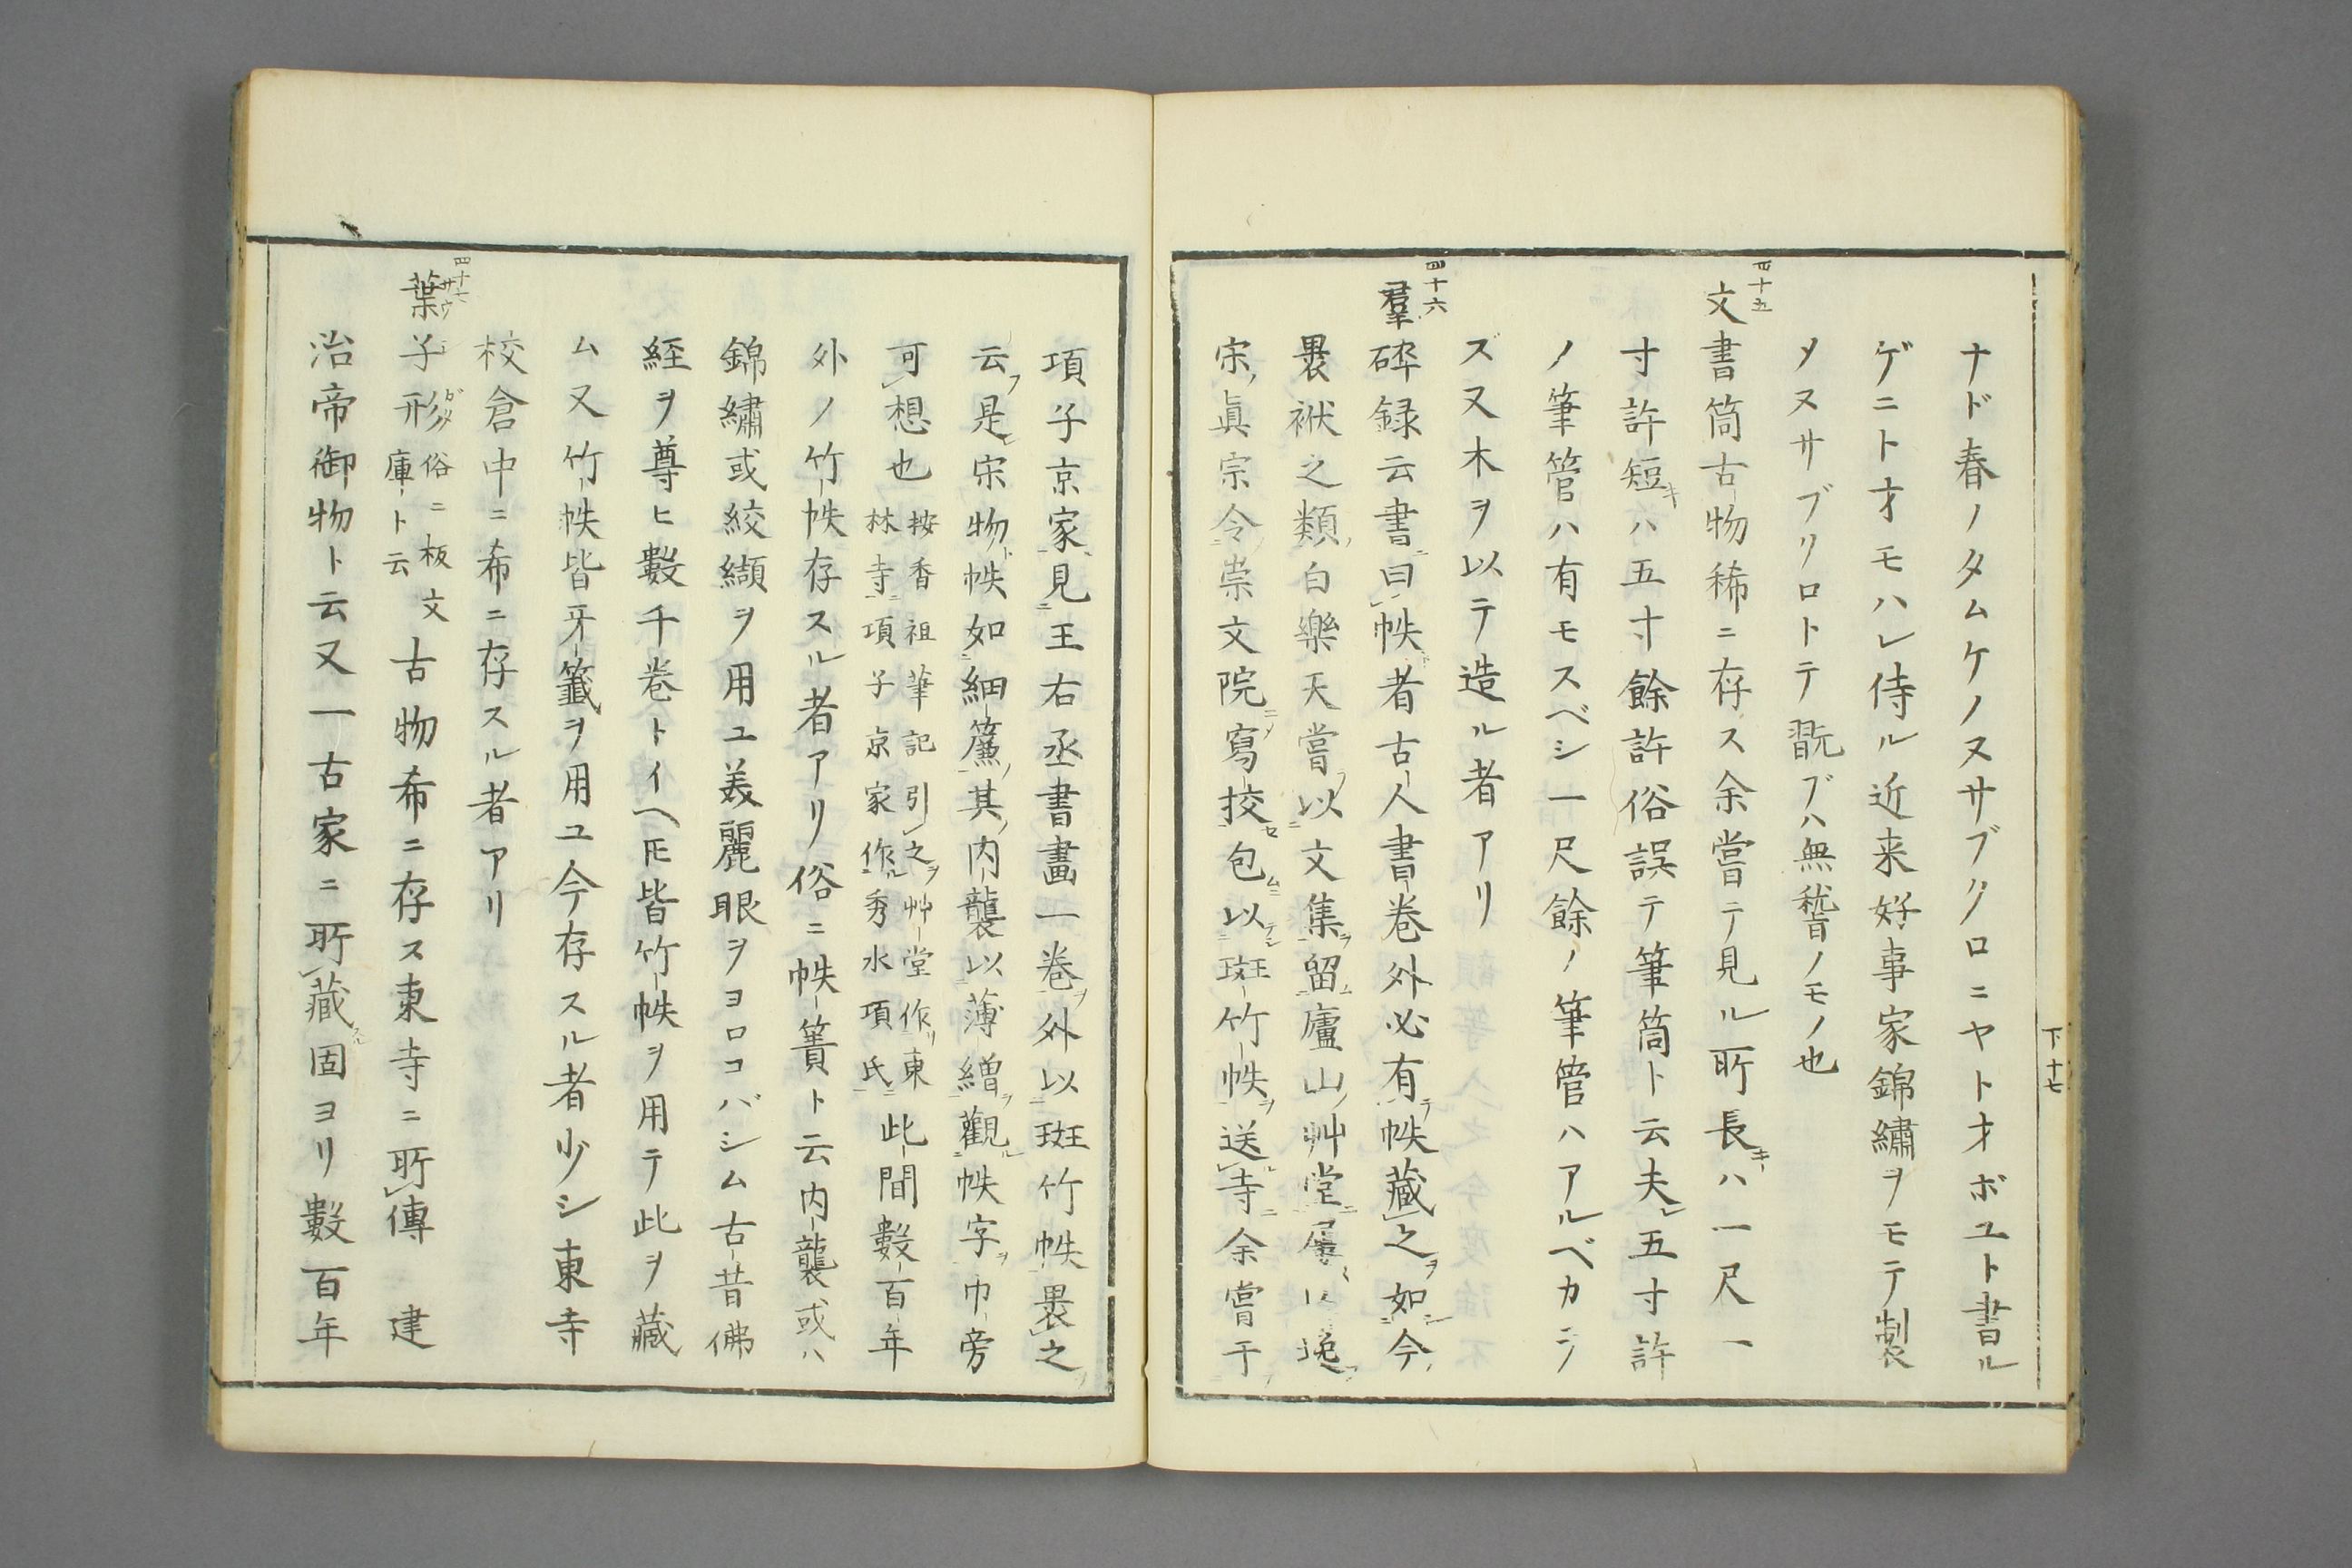 ナド春ノタムケノヌサブクロニヤトオボユト書ル
ゲニトオモハレ侍ル近来好事家錦繡ヲモテ製
メヌサブクロトテ翫ブハ無誓ノモノ也
四十五
文書筒古物稀ニ存ス余嘗テ見ル所長キハ一尺一
寸許短キハ五寸餘許俗誤テ筆筒ト云夫レ五寸許
ノ筆管ハ有モスベシ一尺餘ノ筆管ハアルベカラ
ズ又木ヲ以テ造ル者アリ
四十六
羣砕録云書曰帙者古人書卷外必有帙藏之如今
裹袱之類白樂天嘗以文集留廬山艸堂屢以
宋眞宗令崇文院寫挍包以斑竹帙送寺余嘗于
下十七
項子京家見王右丞書畫一卷外以斑竹帙裹之
云是宋物帙如細簾其内襲以薄繒觀帙字巾旁
可想也
按香祖筆記引之艸堂作東
林寺項子京家作秀水項氏
此間數百年
外ノ竹帙存スル者アリ俗ニ帙簀ト云内襲或ハ
錦繡或絞纈ヲ用ユ美麗眼ヲヨロコバシム古昔佛
経ヲ尊ヒ數千卷トイヘ𪜈皆竹帙ヲ用テ此ヲ藏
ム又竹帙皆牙籤ヲ用ユ今存スル者少シ東寺
校倉中ニ希ニ存スル者アリ
葉子形
俗ニ板文
庫ト云
古物希ニ存ス東寺ニ所傳 建
治帝御物ト云又一古家ニ所藏固ヨリ數百年